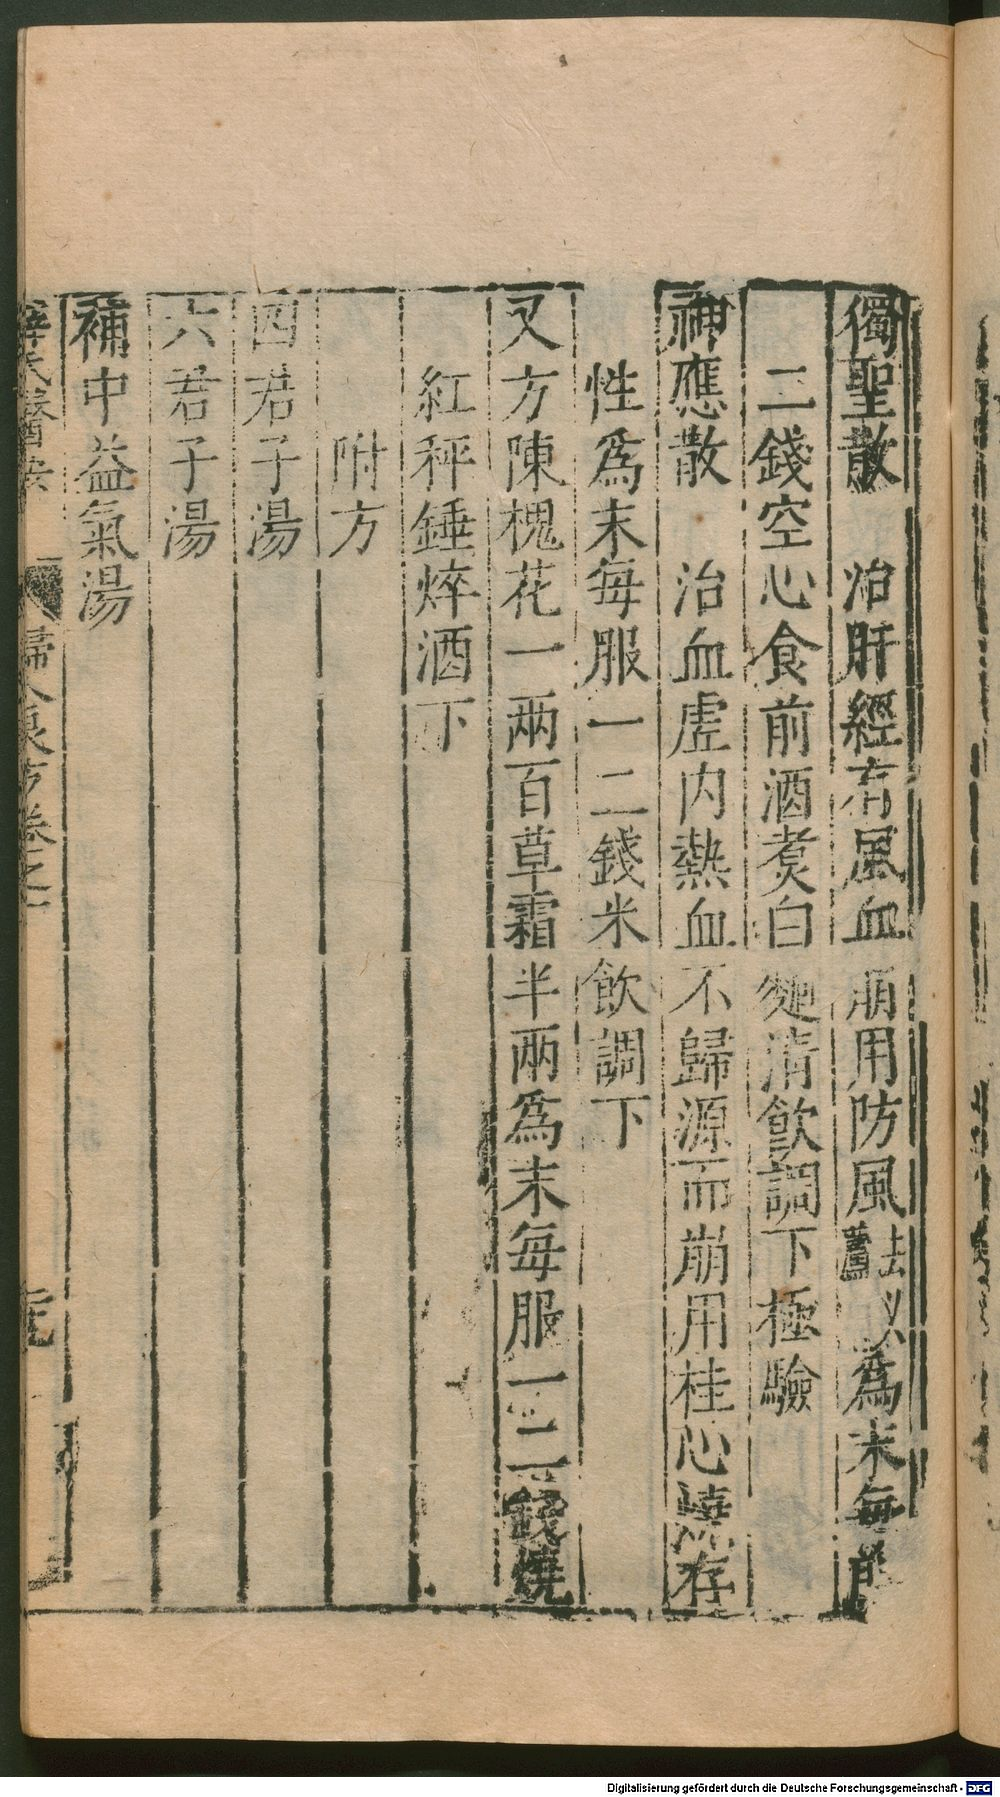 獨聖散　治肝經有風血崩用防風去蘆以爲末每服
二錢空心食前酒煑白麪清飲調下極驗
神應散　治血虚内熱血不歸源而崩用桂心燒存
性爲末每服一二錢米飲調下
又方陳槐花一兩百草霜半兩爲末每服一二錢燒
紅秤錘焠酒下
附方
四君子湯
六君子湯
補中益氣湯
薛氏醫按　婦人良方卷之一
Digitalisierung gefördert durch die Deutsche Forschungsgemeinschaft - DFG